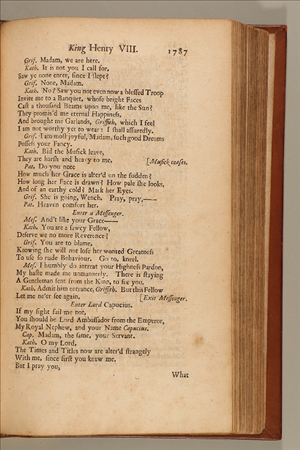 King Henry VIII. 1787
Grif. Madam, we are here.
Kath. It is not you I call for,
Saw ye none enter, since I slept?
Grif. None, Madam.
Kath. No? Saw you not even now a blessed Troop
Invite me to a Banquet, whose bright Faces
Cast a thousand Beams upon me, like the Sun?
They promis'd me eternal Happiness,
And brought me Garlands, Griffith, which I feel
I am not worthy yet to wear: I shall assuredly.
Grif. I am most joyful, Madam, such good Dreams
Possess your Fancy.
Kath. Bid the Musick leave,
They are harsh and heavy to me. [Musick ceases.
Pat. Do you note
How much her Grace is alter'd on the sudden?
How long her Face is drawn? How pale she looks,
And of an earthy cold? Mark her Eyes.
Grif. She is going, Wench. Pray, pray,——
Pat. Heaven comfort her.
Enter a Messenger.
Mes. And't like your Grace——
Kath. You are a sawcy Fellow,
Deserve we no more Reverence?
Grif. You are to blame,
Knowing she will not lose her wonted Greatness
To use so rude Behaviour. Go to, kneel.
Mes. I humbly do intreat your Highness Pardon,
My haste made me unmannerly. There is staying
A Gentleman sent from the King, to see you.
Kath. Admit him entrance, Griffith. But this Fellow
Let me ne'er see again. [Exit Messenger.
Enter Lord Capucius.
If my sight fail me not,
You should be Lord Ambassador from the Emperor,
My Royal Nephew, and your Name Capucius.
Cap. Madam, the same, your Servant.
Kath. O my Lord,
The Times and Titles now are alter'd strangely
With me, since first you knew me.
But I pray you,
What